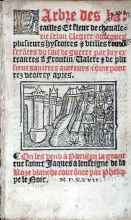 Larbre des ba-
tailles Et fleur de cheuale-
rie selon Vegece auecques
plusieurs hystoires & vtilles remō-
strāces du fait de guerre par luy ex-
traictes d Frontin Valere & de plu-
sieurs aultres aucteurs cōme pour-
rez veoir cy apres.
On les vend a Paris en la grant
rue sainct Jaques a lenseigne de la
Roze blanche couronnee par Phelip-
pe le Noir.